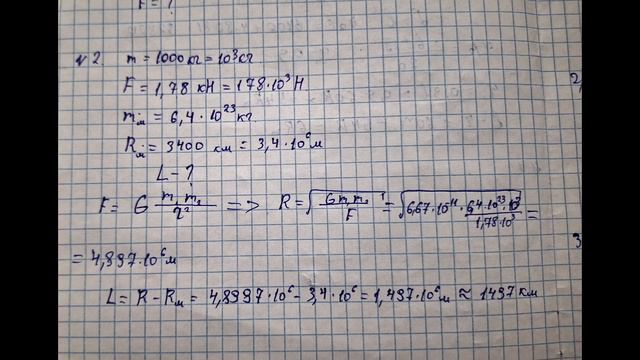 F = ?
№2. m = 1000 кг = 10³ кг
F = 1,78 кН = 178·10³ Н
mₘ = 6,4·10²³ кг
Rₘ = 3400 км = 3,4·10⁶ м
L - ?
F = G m₁m₂/r² => R = √(Gm₁m₂/F) = √(6,67·10⁻¹¹·6,4·10²³·10³/1,78·10³) =
= 4,897·10⁶ м
L = R - Rₘ = 4,8997·10⁶ - 3,4·10⁶ = 1,497·10⁶ м ≈ 1497 км
2,
3